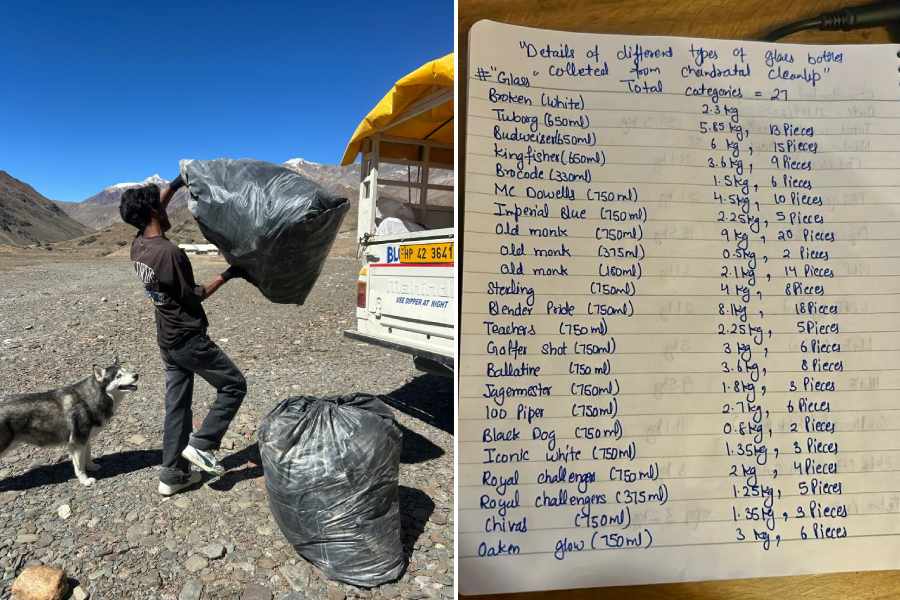 BL
HP 42 3641
mahindra
USE DIPPER AT NIGHT
"Details of different types of glass bottles
colleted from chandratal cleanup"
#"Glass" Total categories = 27
Broken (White) 2.3 kg
Tuborg (650ml) 5.85 kg, 13 Pieces
Budweiser(650ml) 6 kg, 15 Pieces
Kingfisher (650ml) 3.6 kg, 9 Pieces
Brocode (330ml) 1.5 kg, 6 Pieces
MC Dowells (750ml) 4.5 kg, 10 Pieces
Imperial Blue (750ml) 2.25 kg, 5 Pieces
Old monk (750ml) 9 kg, 20 Pieces
Old monk (375ml) 0.5 kg, 2 Pieces
Old monk (180ml) 2.1 kg, 14 Pieces
Sterling (750ml) 4 kg, 8 Pieces
Blender Pride (750ml) 8.1 kg, 18 Pieces
Teachers (750ml) 2.25 kg, 5 Pieces
Golfer Shot (750ml) 3 kg, 6 Pieces
Ballatine (750ml) 3.6 kg, 8 Pieces
Jagermester (750ml) 1.8 kg, 3 Pieces
100 Piper (750ml) 2.7 kg, 6 Pieces
Black Dog (750ml) 0.8 kg, 2 Pieces
Iconic white (750ml) 1.35 kg, 3 Pieces
Royal challenger (750ml) 2 kg, 4 Pieces
Royal challengers (375ml) 1.25 kg, 5 Pieces
Chivas (750ml) 1.35 kg, 3 Pieces
Oaken glow (750ml) 3 kg, 6 Pieces